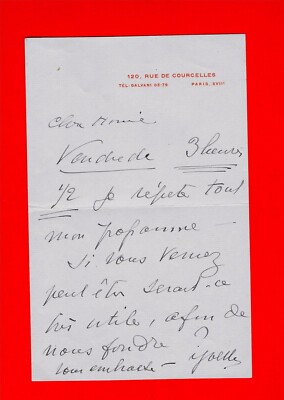 120, RUE DE COURCELLES
TEL. GALVANI 05-75 PARIS, XVIIE
Vendredi 3 heures
1/2 Je répète tout
mon programme
Si vous venez
peut être serait-ce
très utile, afin de
nous
vous embrasse